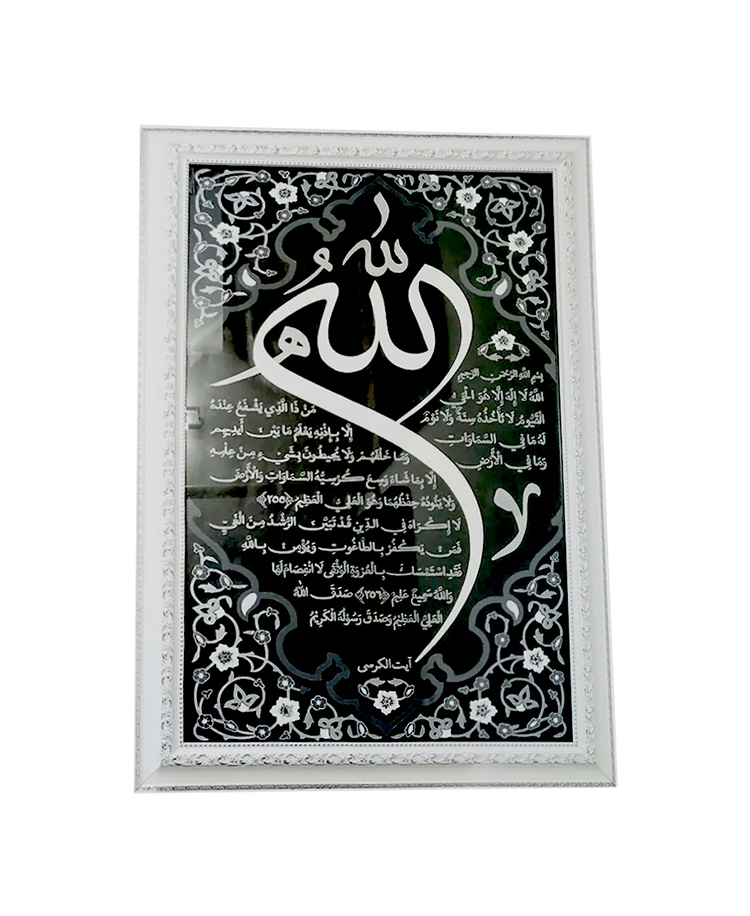 الله
بِسْمِ اللهِ الرَّحْمٰنِ الرَّحِيمِ
اللهُ لَا إِلٰهَ إِلَّا هُوَ الْحَيُّ
الْقَيُّومُ لَا تَأْخُذُهُ سِنَةٌ وَلَا نَوْمٌ
لَهُ مَا فِي السَّمَاوَاتِ
وَمَا فِي الْأَرْضِ
مَنْ ذَا الَّذِي يَشْفَعُ عِنْدَهُ
إِلَّا بِإِذْنِهِ يَعْلَمُ مَا بَيْنَ أَيْدِيهِمْ
وَمَا خَلْفَهُمْ وَلَا يُحِيطُونَ بِشَيْءٍ مِنْ عِلْمِهِ
إِلَّا بِمَا شَاءَ وَسِعَ كُرْسِيُّهُ السَّمَاوَاتِ وَالْأَرْضَ
وَلَا يَئُودُهُ حِفْظُهُمَا وَهُوَ الْعَلِيُّ الْعَظِيمُ ﴿٢٥٥﴾
لَا إِكْرَاهَ فِي الدِّينِ قَدْ تَبَيَّنَ الرُّشْدُ مِنَ الْغَيِّ
فَمَنْ يَكْفُرْ بِالطَّاغُوتِ وَيُؤْمِنْ بِاللهِ
فَقَدِ اسْتَمْسَكَ بِالْعُرْوَةِ الْوُثْقَى لَا انْفِصَامَ لَهَا
وَاللهُ سَمِيعٌ عَلِيمٌ ﴿٢٥٦﴾ صَدَقَ اللهُ
الْعَلِيُّ الْعَظِيمُ وَصَدَقَ رَسُولُهُ الْكَرِيمُ
آیت الکرسی